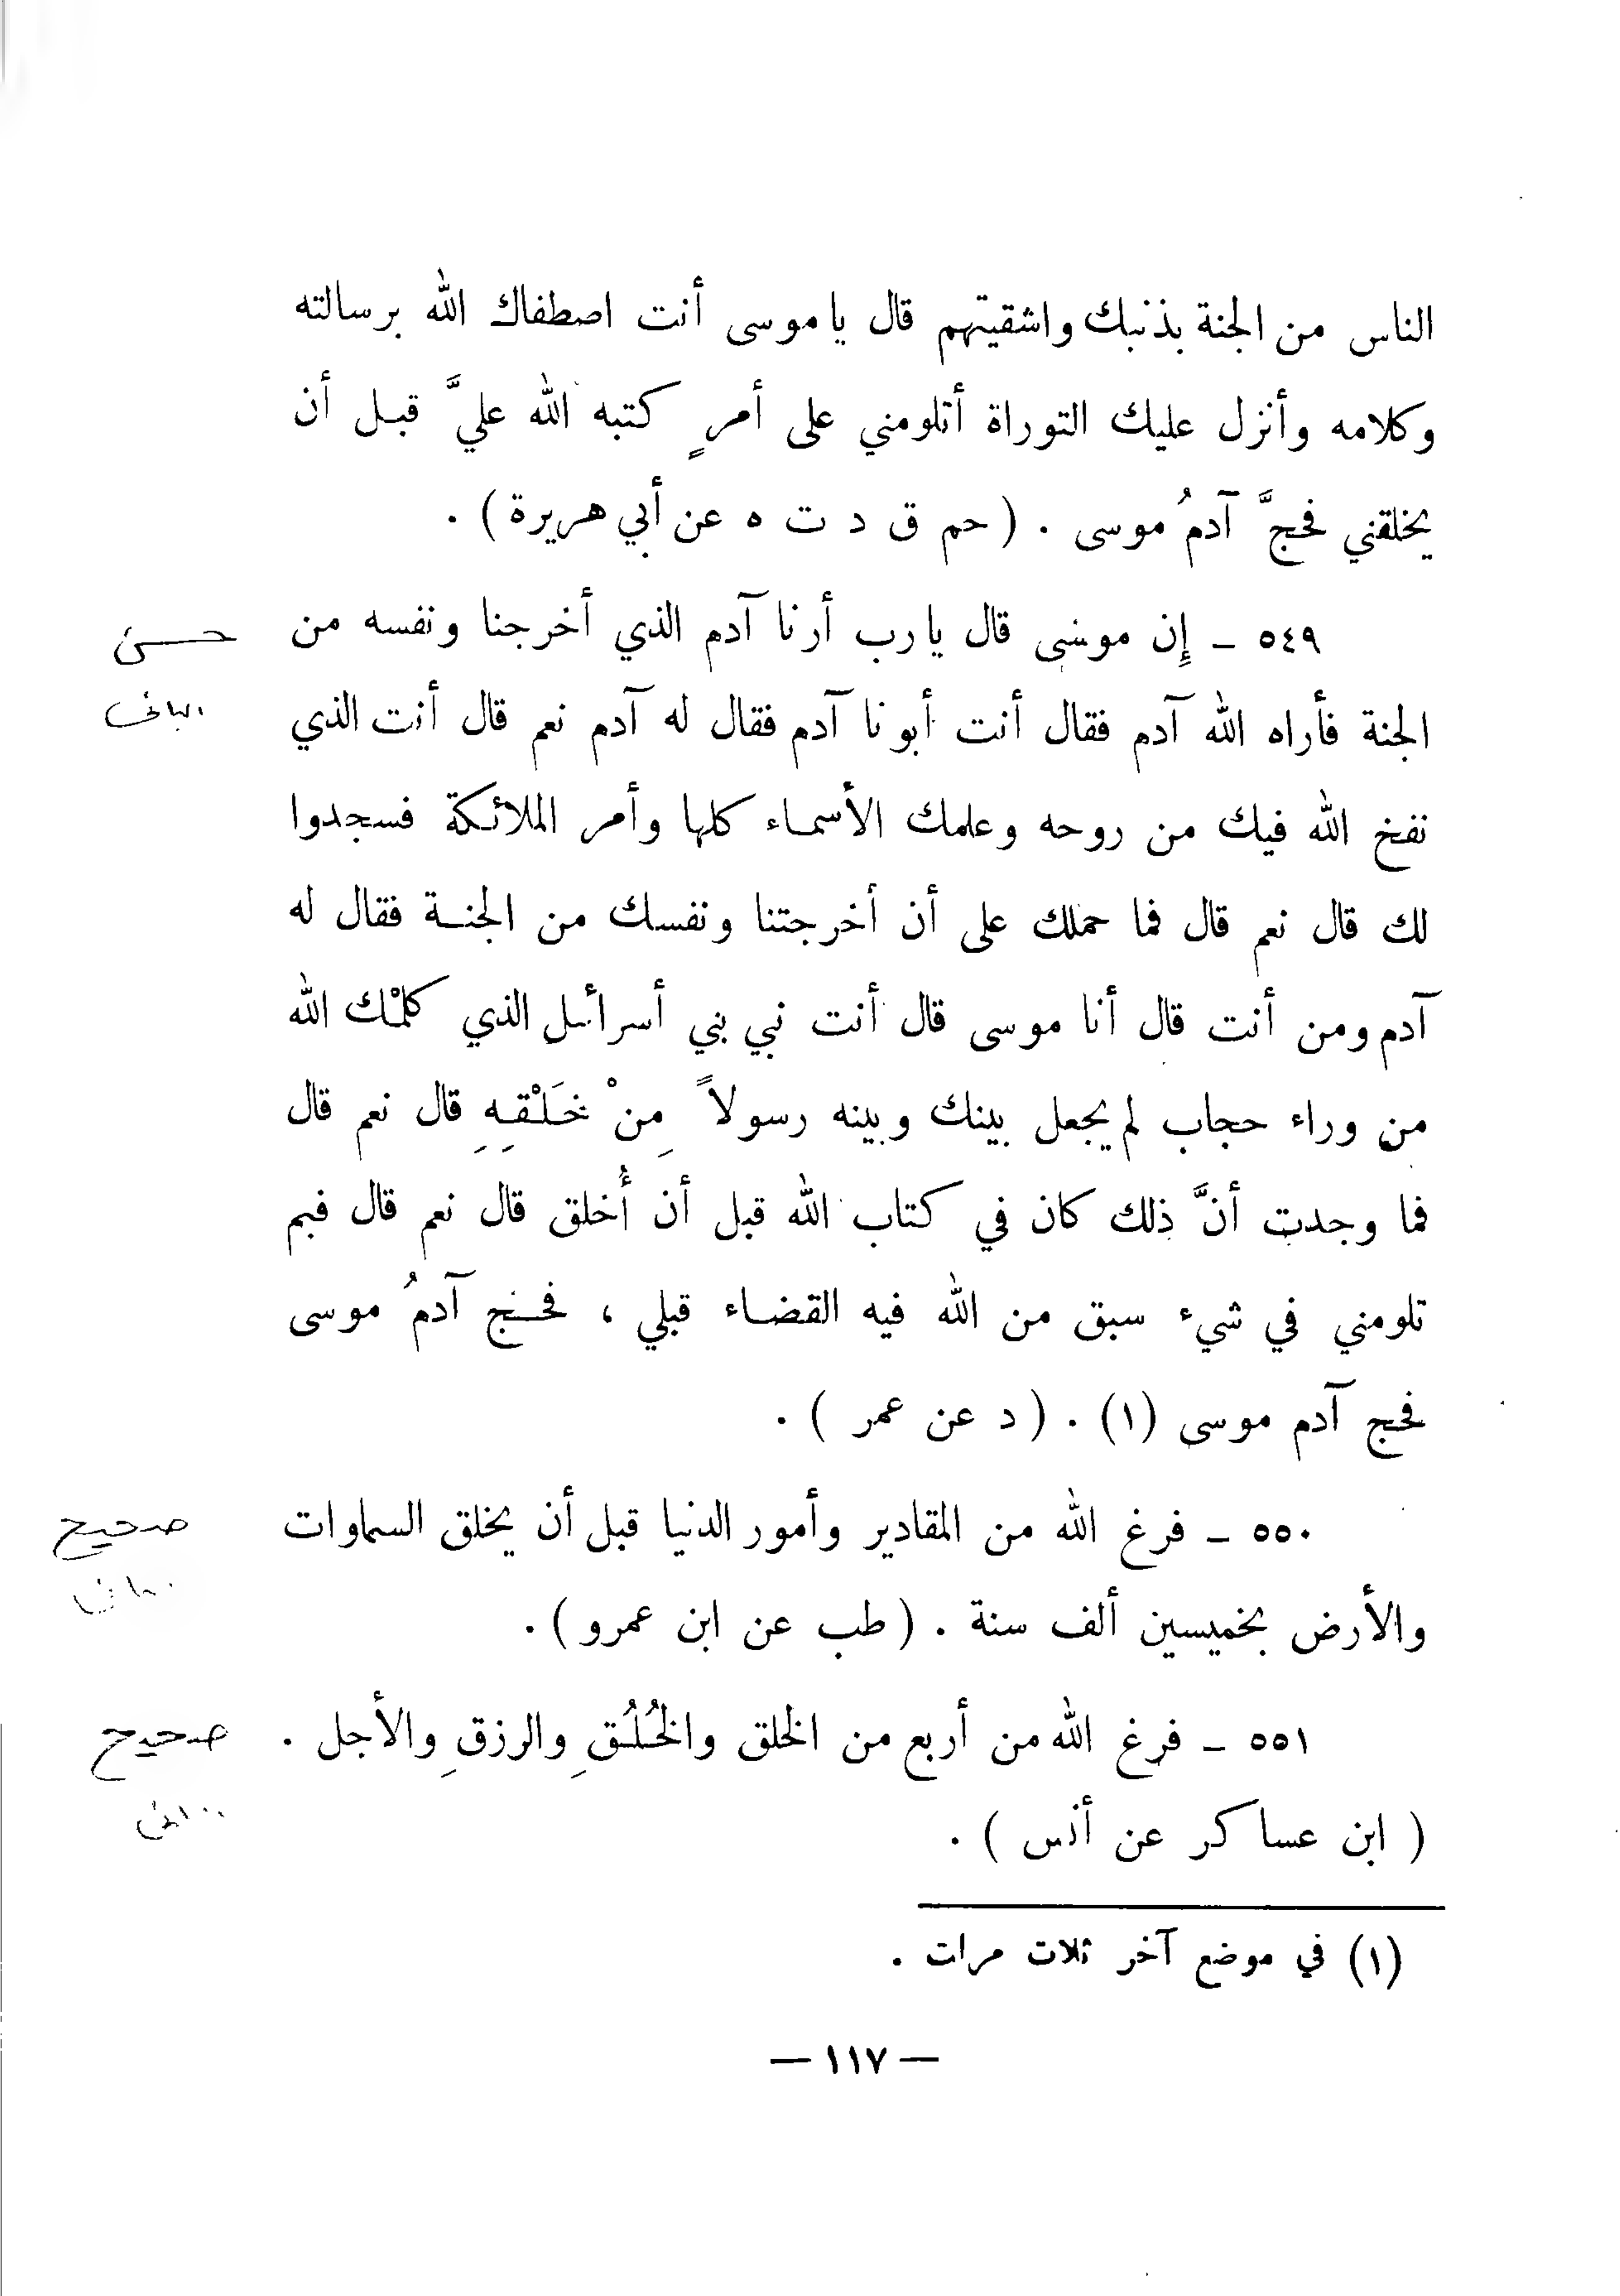 الناس من الجنة بذنبك واشقيتهم قال ياموسى أنت اصطفاك الله برسالته
وكلامه وأنزل عليك التوراة أتلومني على أمرٍ كتبه الله عليَّ قبل أن
يخلقني فحجَّ آدمُ موسى . ( حم ق د ت ه عن أبي هريرة ) .
٥٤٩ ـ إِن موسى قال يارب أرنا آدم الذي أخرجنا ونفسه من
حسن
الجنة فأراه الله آدم فقال أنت أبونا آدم فقال له آدم نعم قال أنت الذي
البانى
نفخ الله فيك من روحه وعلمك الأسماء كلها وأمر الملائكة فسجدوا
لك قال نعم قال فما حملك على أن أخرجتنا ونفسك من الجنة فقال له
آدم ومن أنت قال أنا موسى قال أنت نبي بني أسرائيل الذي كلمْك الله
من وراء حجاب لم يجعل بينك وبينه رسولاً مِنْ خَلْقِهِ قال نعم قال
فما وجدت أنَّ ذلك كان في كتاب الله قبل أن أُخلق قال نعم قال فبم
تلومني في شيء سبق من الله فيه القضاء قبلي ، فحج آدمُ موسى
فحج آدم موسى (١) . ( د عن عمر ) .
٥٥٠ ـ فرغ الله من المقادير وأمور الدنيا قبل أن يخلق السماوات
صحيح
والأرض بخميسين ألف سنة . ( طب عن ابن عمرو ) .
٥٥١ ـ فرغ الله من أربع من الخلق والخُلُقِ والرزقِ والأجل .
صحيح
( ابن عساكر عن أنس ) .
(١) في موضع آخر ثلاث مرات .
— ١١٧ —